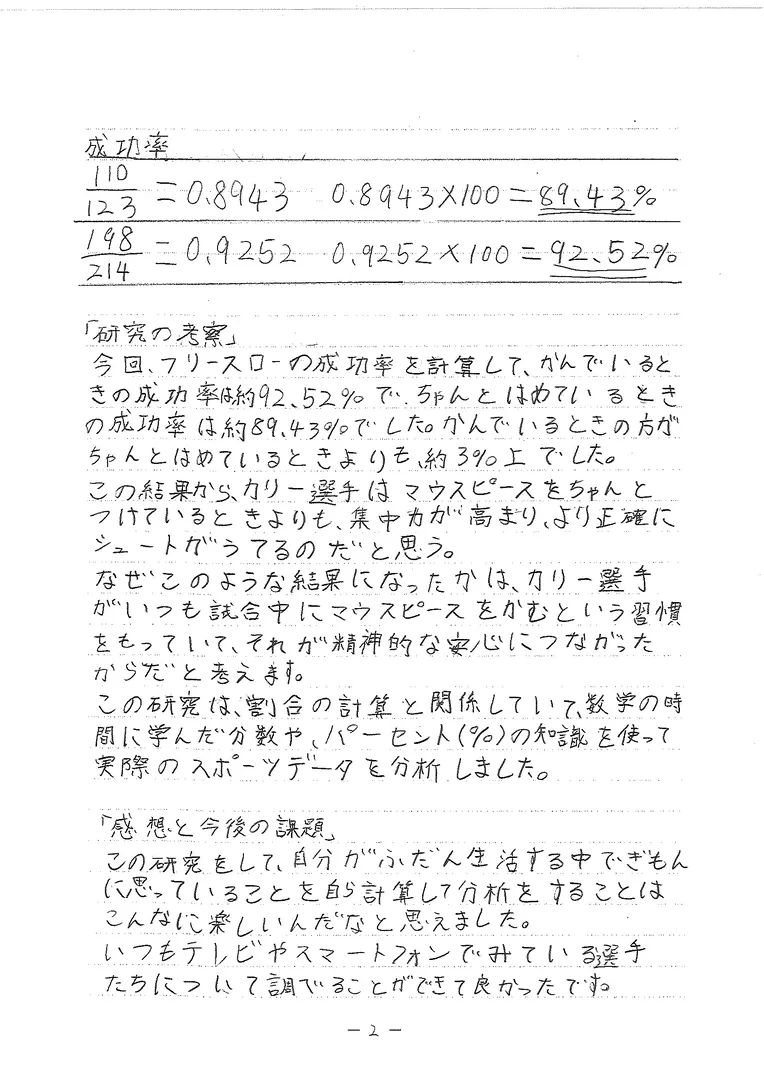 成功率
110/123 = 0.8943 0.8943×100 = 89.43%
198/214 = 0.9252 0.9252×100 = 92.52%
「研究の考察」
今回、フリースローの成功率を計算して、かんでいると
きの成功率は約92.52%で、ちゃんとはめているとき
の成功率は約89.43%でした。かんでいるときの方が
ちゃんとはめているときよりも、約3%上でした。
この結果から、カリー選手はマウスピースをちゃんと
つけているときよりも、集中力が高まり、より正確に
シュートがうてるのだと思う。
なぜこのような結果になったかは、カリー選手
がいつも試合中にマウスピースをかむという習慣
をもっていて、それが精神的な安心につながった
からだと考えます。
この研究は、割合の計算と関係していて、数学の時
間に学んだ分数や、パーセント(%)の知識を使って
実際のスポーツデータを分析しました。
「感想と今後の課題」
この研究をして、自分がふだん生活する中でぎもん
に思っていることを自ら計算して分析をすることは
こんなに楽しいんだなと思えました。
いつもテレビやスマートフォンでみている選手
たちについて調べることができて良かったです。
- 2 -